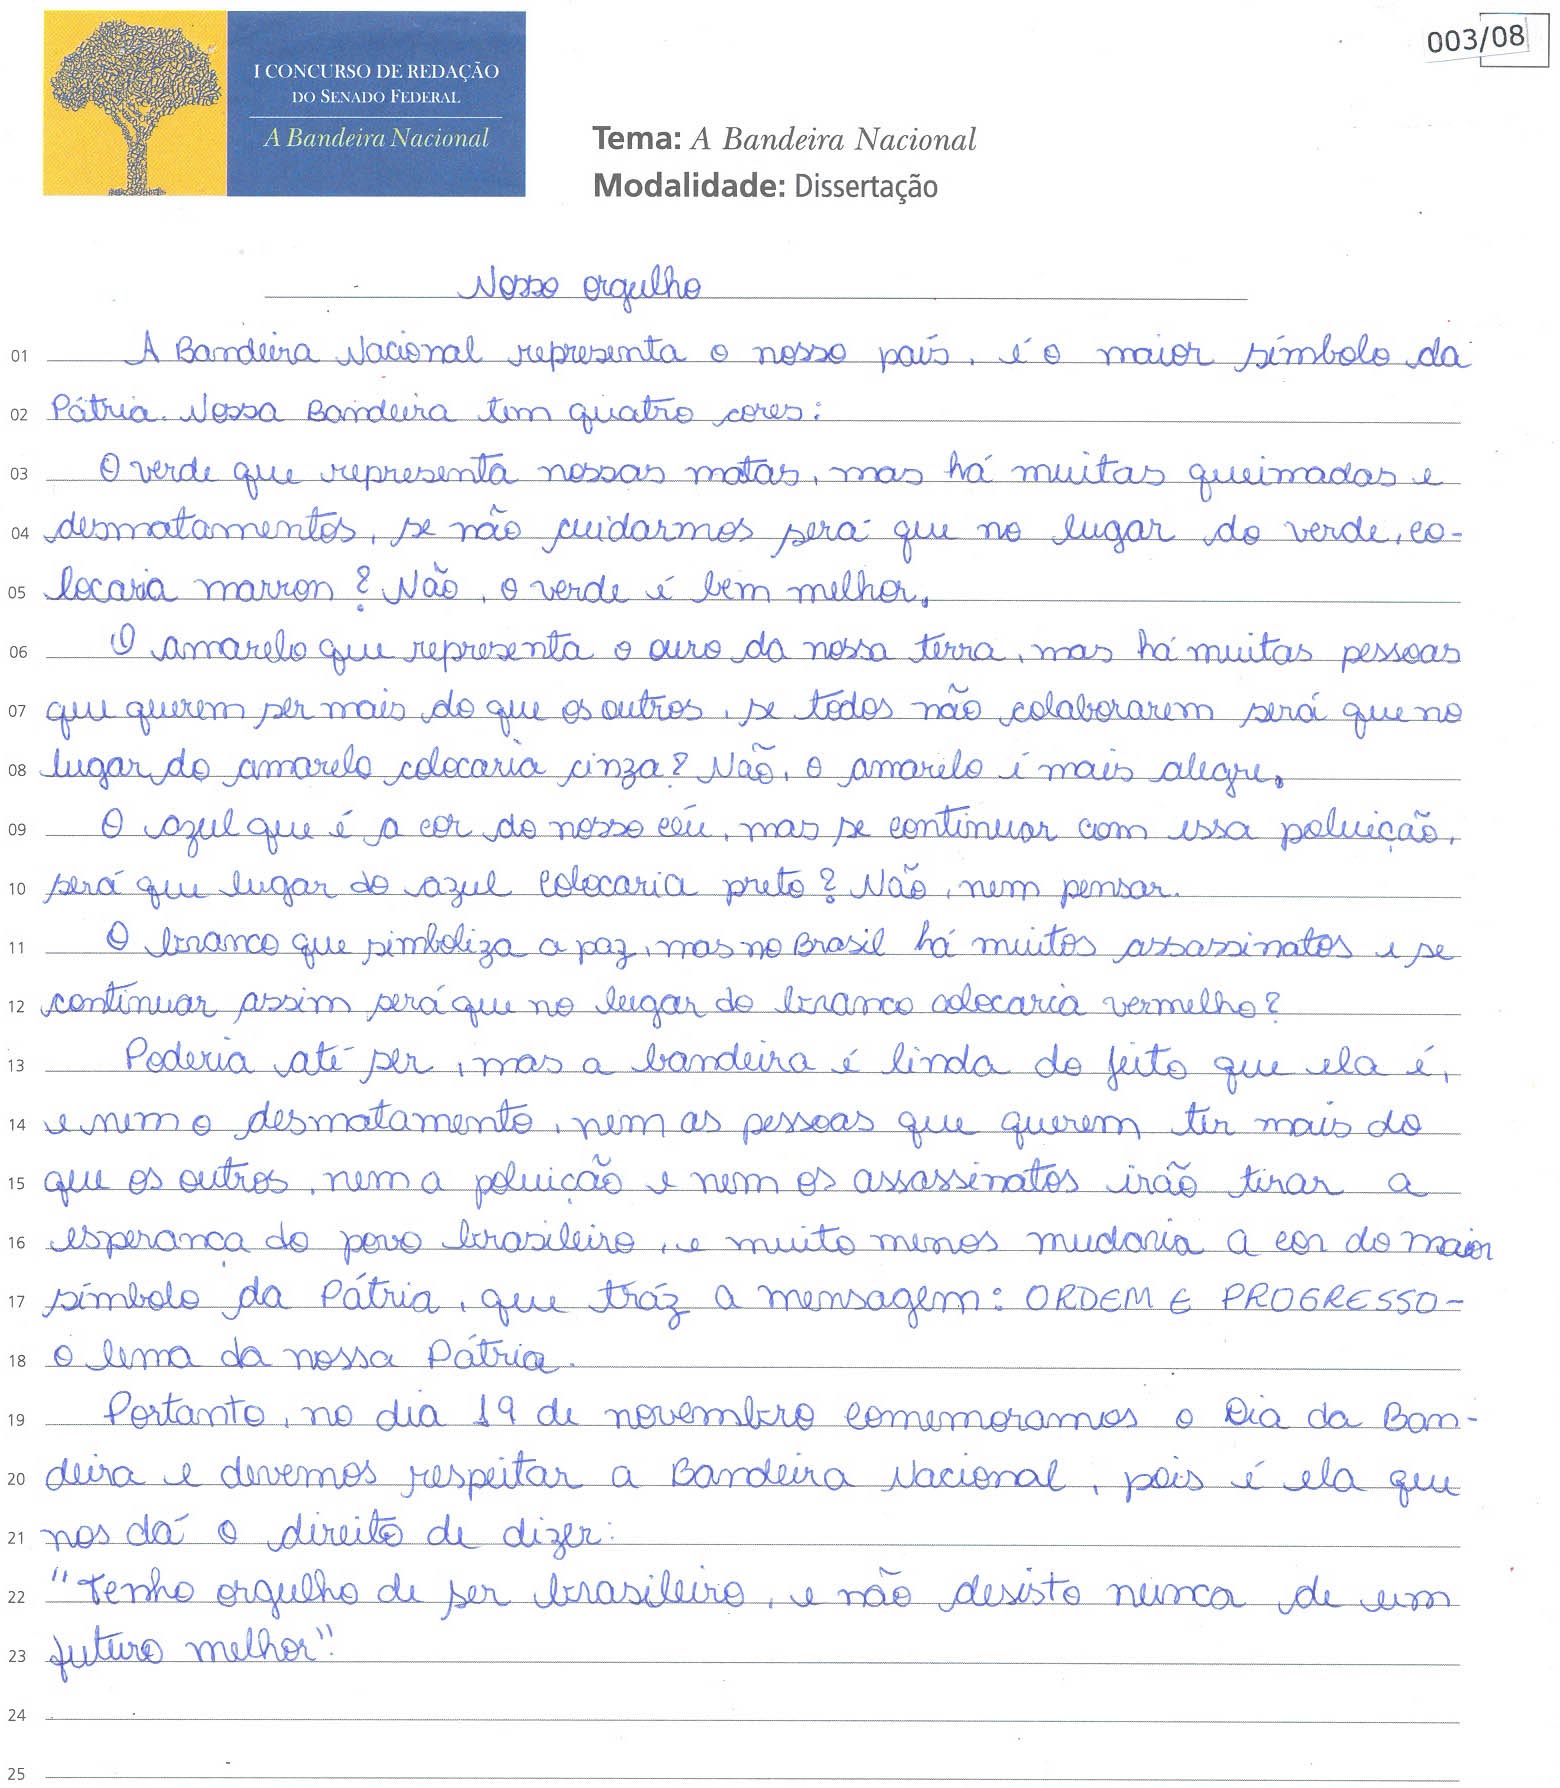 003/08
I CONCURSO DE REDAÇÃO
DO SENADO FEDERAL
A Bandeira Nacional
Tema: A Bandeira Nacional
Modalidade: Dissertação
Nosso orgulho
01 A Bandeira Nacional representa o nosso país, é o maior símbolo da
02 Pátria. Nossa Bandeira tem quatro cores:
03 O verde que representa nossas matas, mas há muitas queimadas e
04 desmatamentos, se não cuidarmos será que no lugar do verde, co-
05 locaria marron? Não, o verde é bem melhor.
06 O amarelo que representa o ouro da nossa terra, mas há muitas pessoas
07 que querem ser mais do que os outros, se todos não colaborarem será que no
08 lugar do amarelo colocaria cinza? Não, o amarelo é mais alegre.
09 O azul que é a cor do nosso céu, mas se continuar com essa poluição,
10 será que lugar do azul colocaria preto? Não, nem pensar.
11 O branco que simboliza a paz, mas no Brasil há muitos assassinatos e se
12 continuar assim será que no lugar do branco colocaria vermelho?
13 Poderia até ser, mas a bandeira é linda do jeito que ela é,
14 e nem o desmatamento, nem as pessoas que querem ter mais do
15 que os outros, nem a poluição e nem os assassinatos irão tirar a
16 esperança do povo brasileiro, e muito menos mudaria a cor do maior
17 símbolo da Pátria, que tráz a mensagem: ORDEM E PROGRESSO-
18 o lema da nossa Pátria.
19 Portanto, no dia 19 de novembro comemoramos o Dia da Ban-
20 deira e devemos respeitar a Bandeira Nacional, pois é ela que
21 nos dá o direito de dizer:
22 "Tenho orgulho de ser brasileiro, e não desisto nunca de um
23 futuro melhor"
24
25